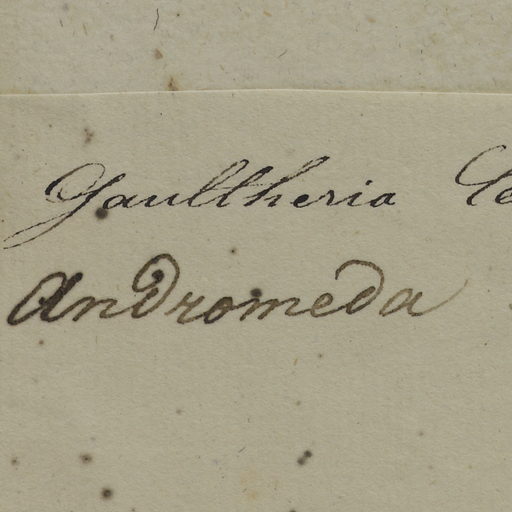 Gaultheria
Andromeda